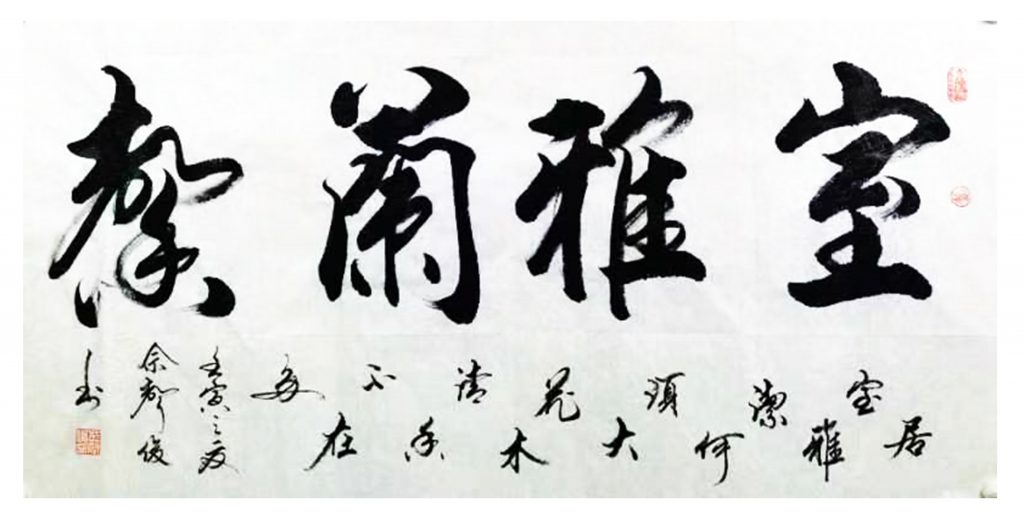 室雅蘭馨
居室雅潔何須大花木清香不在多
壬寅之夏
余俊
书